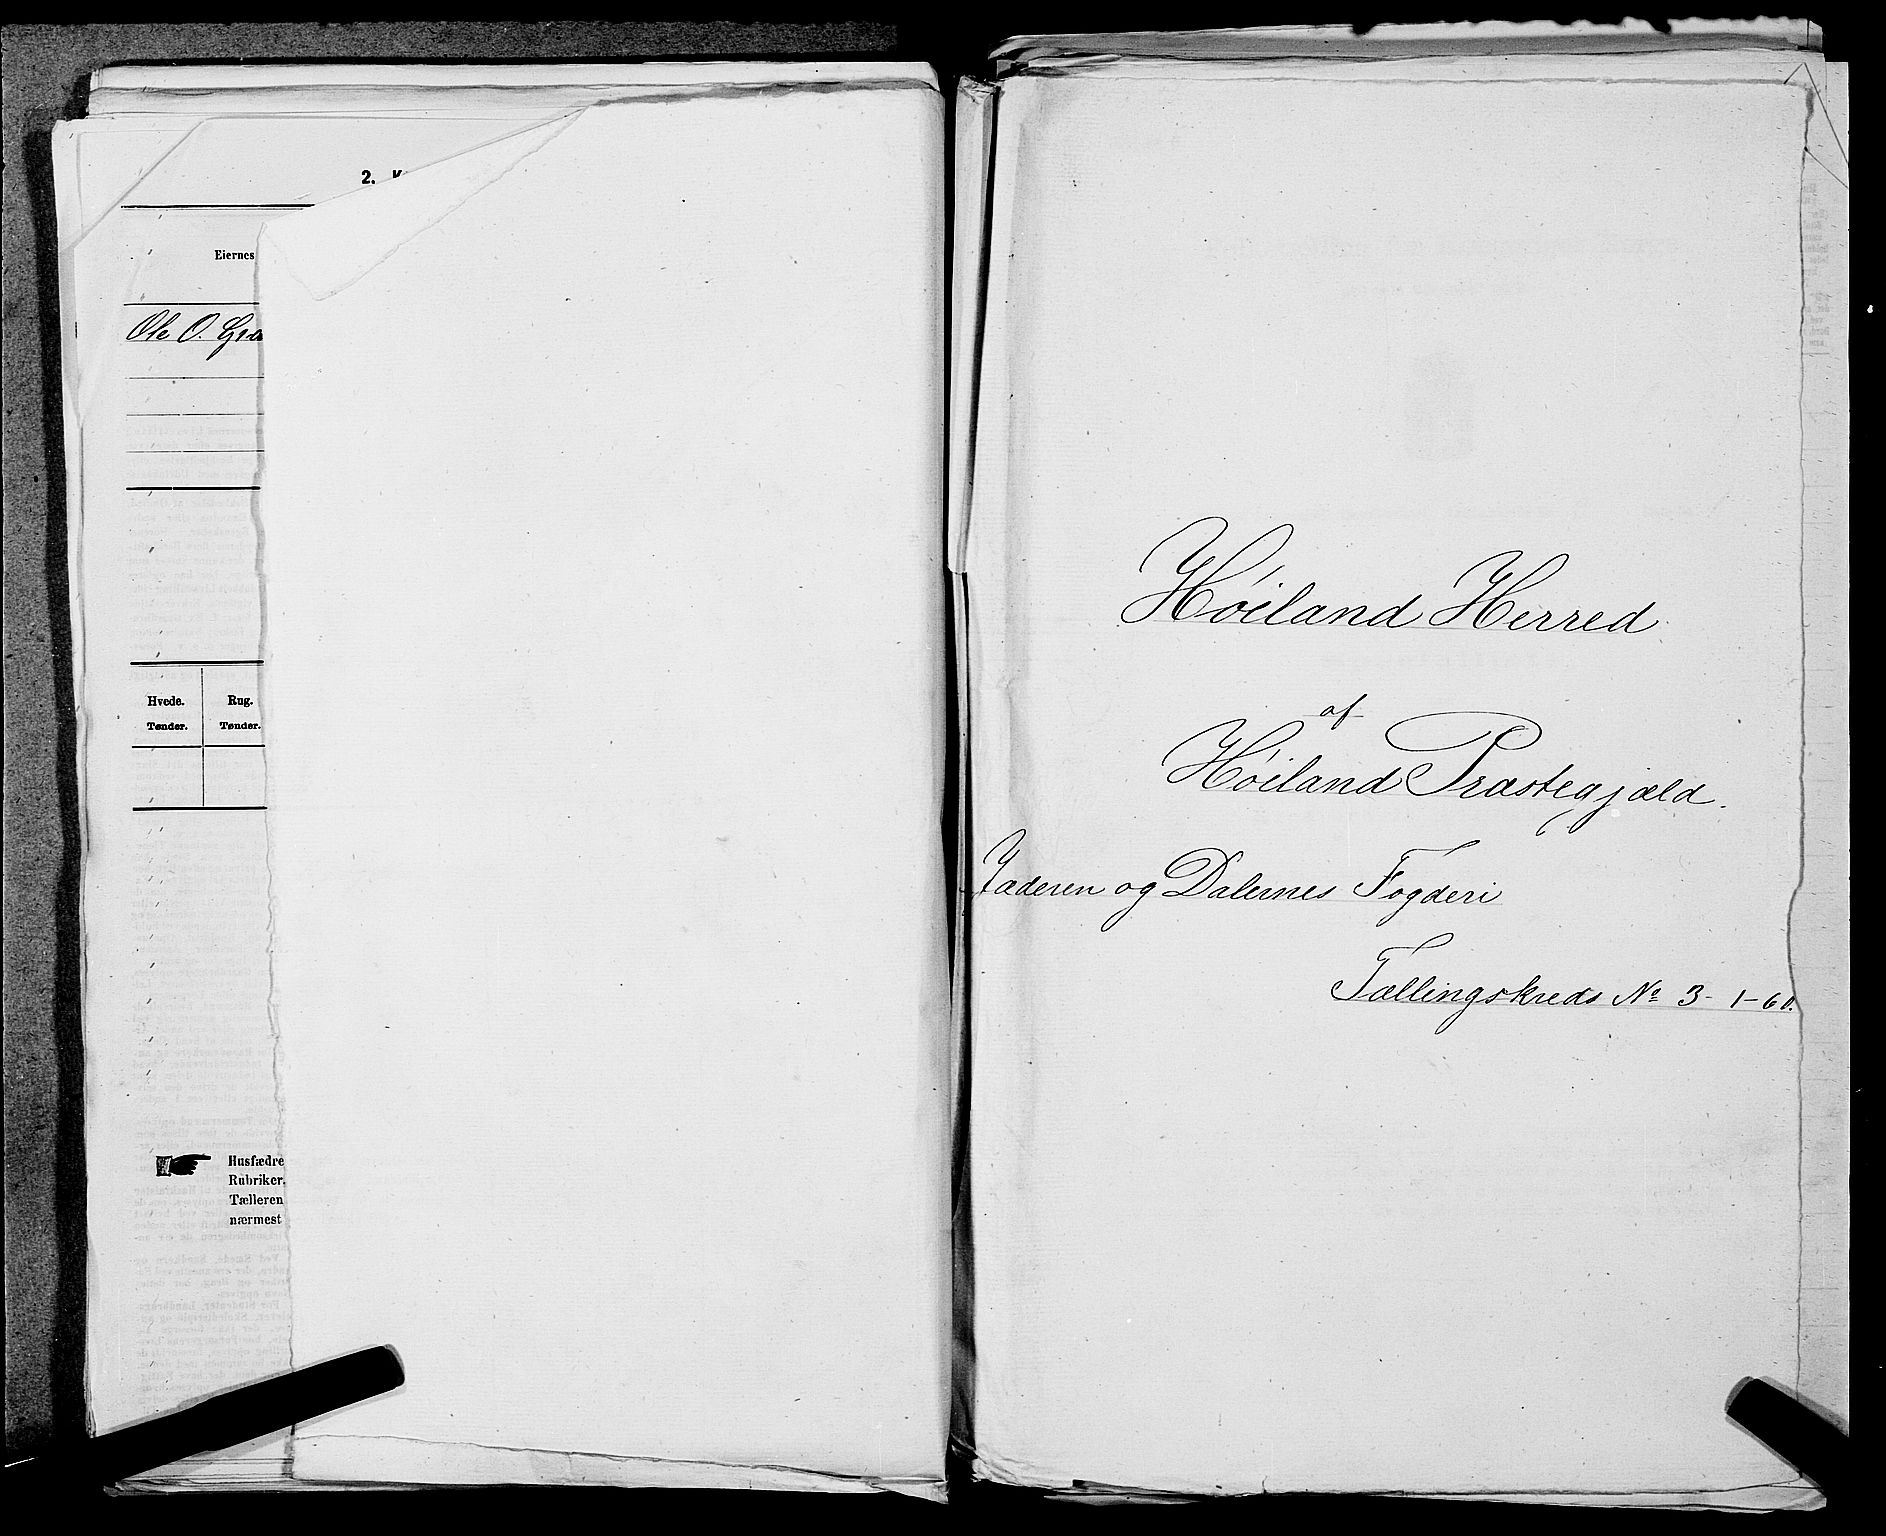 2.
Eiernes
Ole O.
Hvede. Rug.
Tønder. Tønder.
Husfædre
Rubriker.
Tælleren
nærmest
Høiland Herred
af
Høiland Præstegjæld.
Jæderen og Dalernes Fogderi
Tællingskreds No 3 - 1-60.